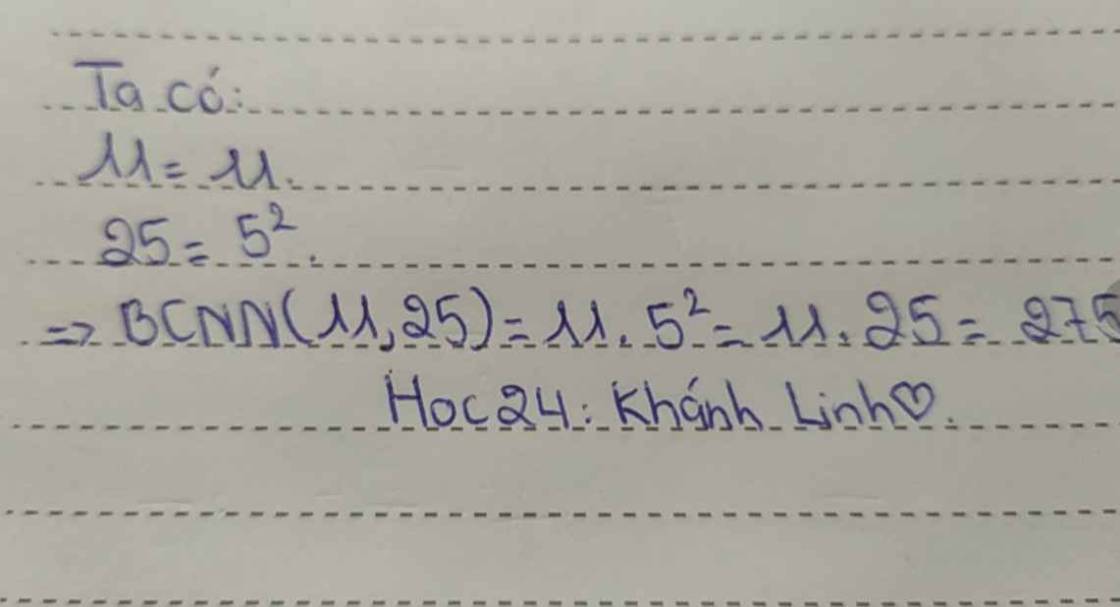 Ta có:
11 = 11.
25 = 5².
=> BCNN(11,25) = 11.5² = 11.25 = 275
Hoc24: Khánh Linh♡.